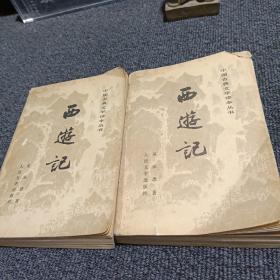 西遊記
中国古典文学读本丛书
吴承恩著
人民文学出版社
西遊記
中国古典文学读本丛书
吴承恩著
人民文学出版社